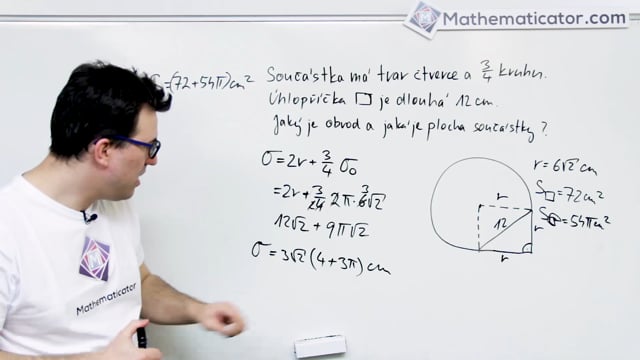 Mathematicator.com
S=(72+54π)cm²
Součástka má tvar čtverce a 3/4 kruhu.
Úhlopříčka □ je dlouhá 12 cm.
Jaký je obvod a jaká je plocha součástky?
σ = 2r + 3/4 σ○
= 2r + 3/24 2π · 3 6√2
12√2 + 9π√2
σ = 3√2 (4 + 3π) cm
r = 6√2 cm
S□ = 72 cm²
= 54π cm²
r
12
r
r
Mathematicator